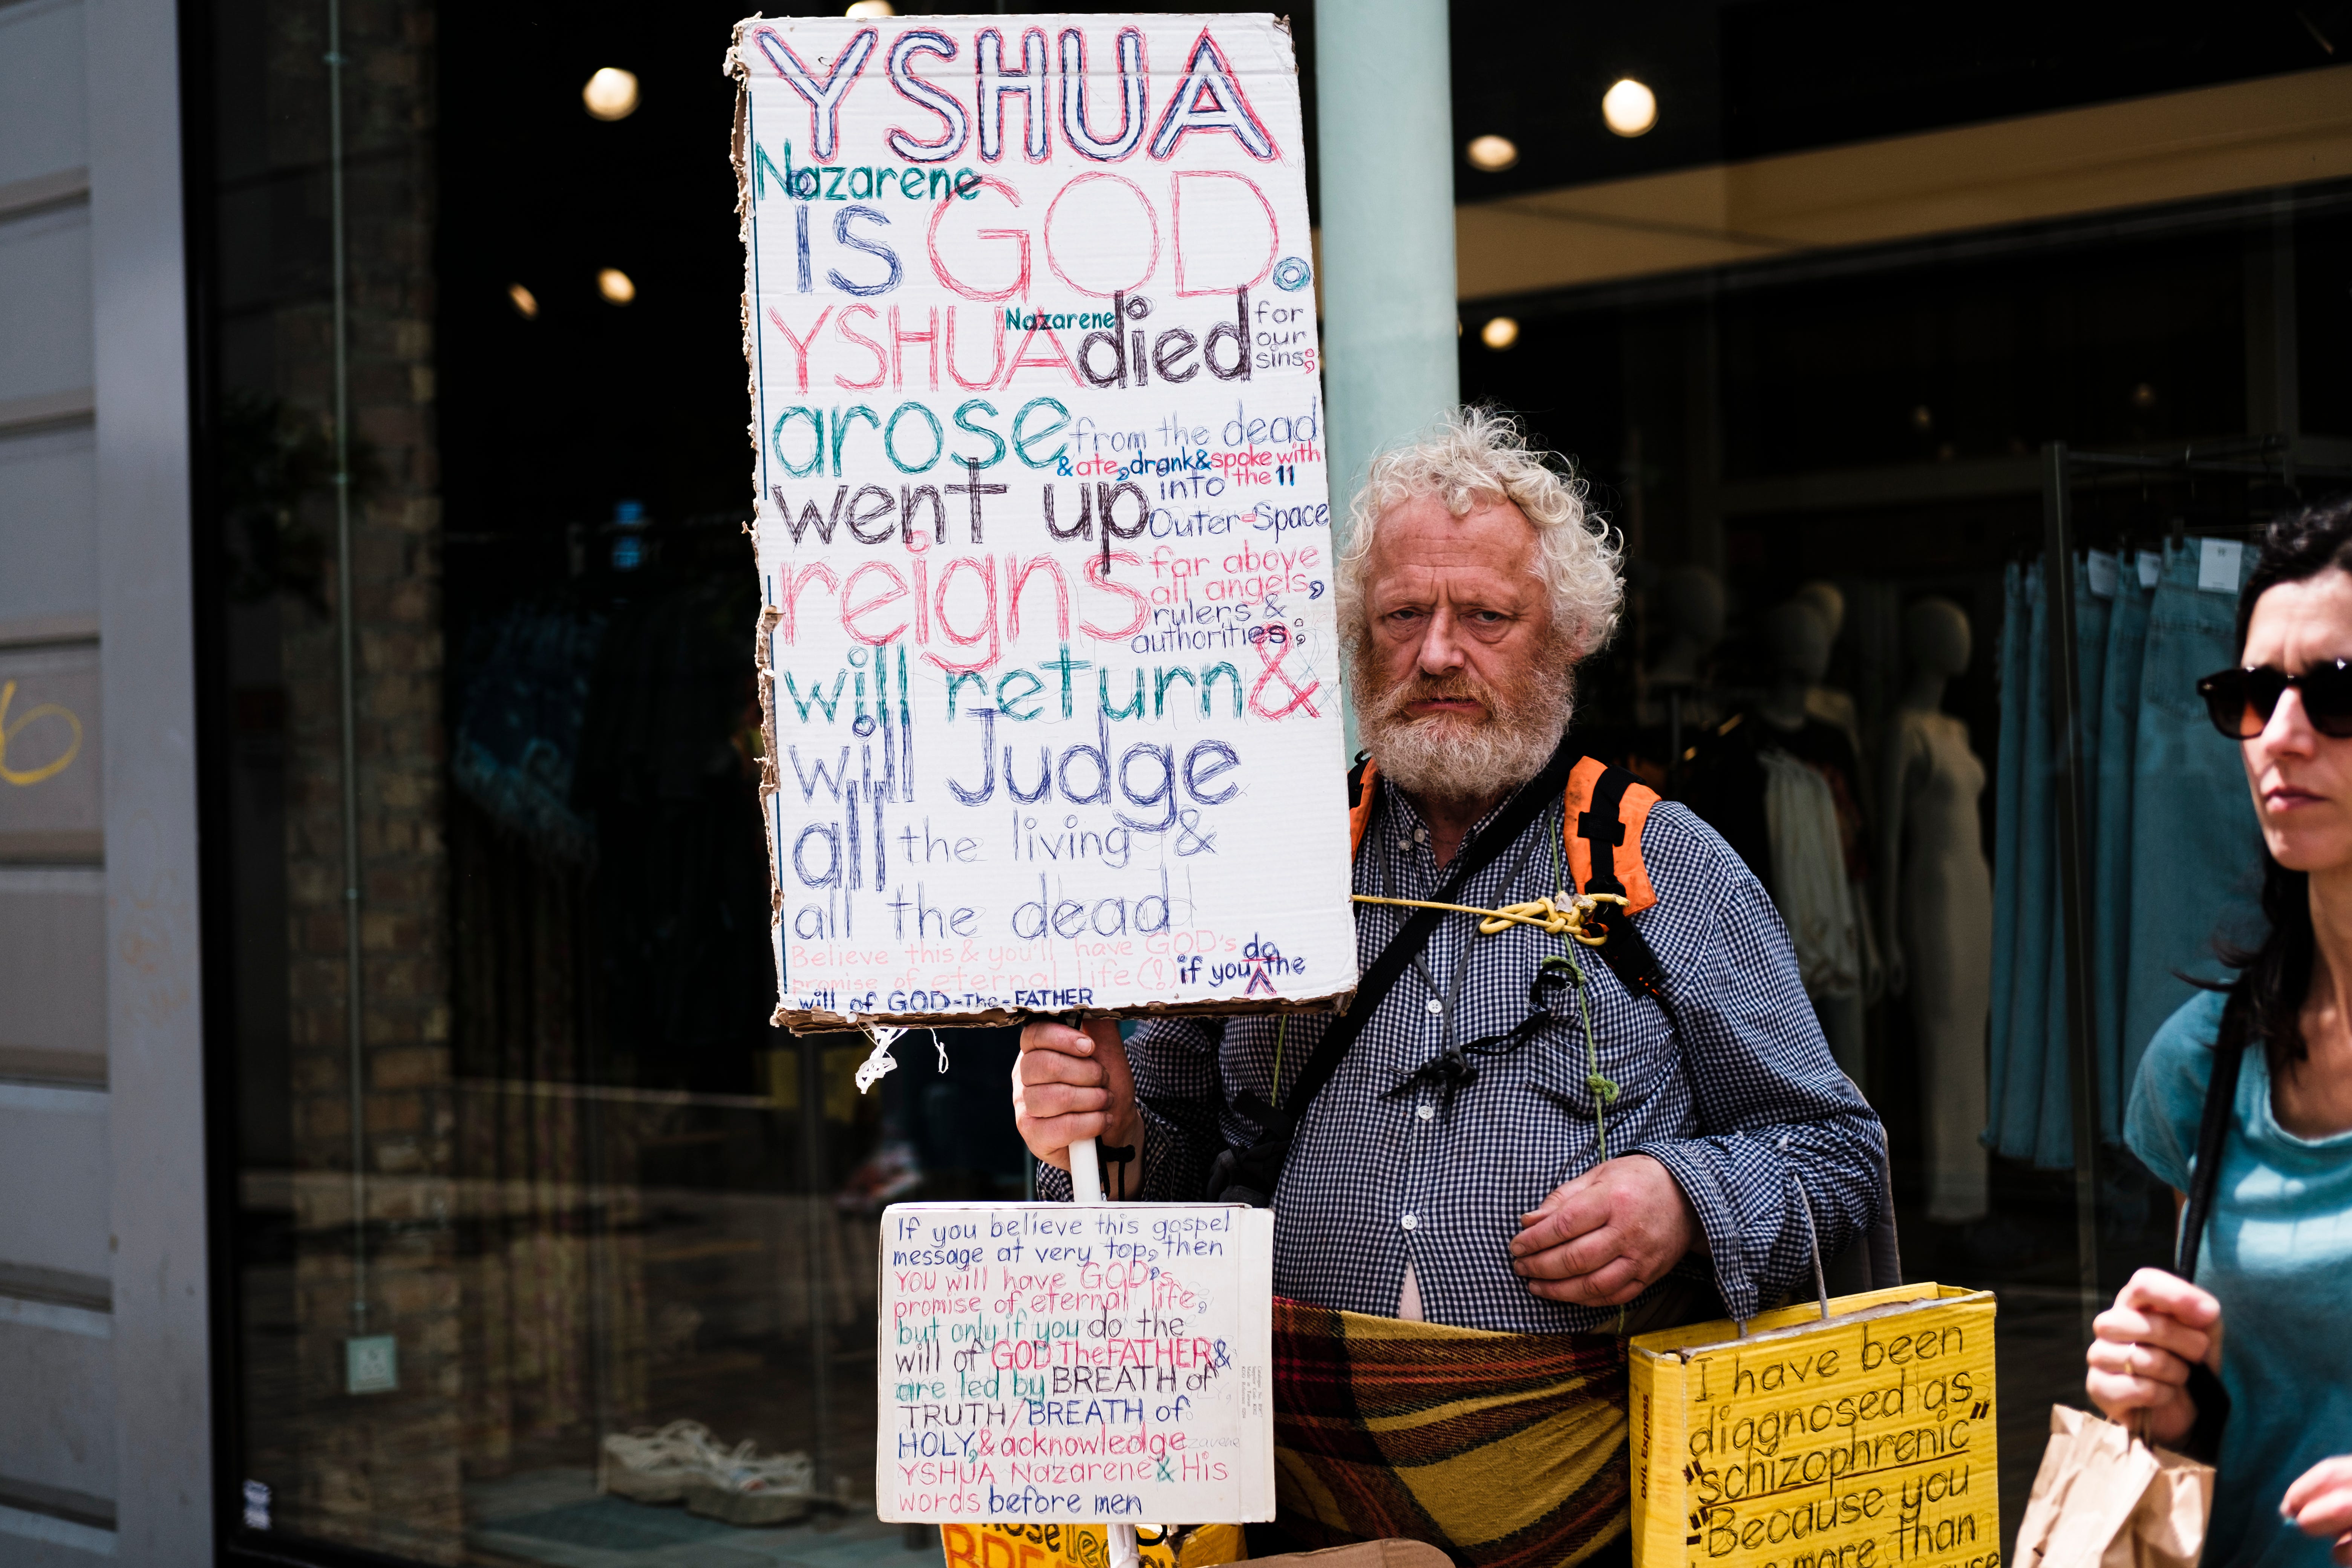 YSHUA
Nazarene
IS GOD.
YSHUA Nazarene died for our sins;
arose from the dead
& ate, drank & spoke with the 11
went up into Outer-Space
reigns far above all angels, rulers & authorities;
will return &
will Judge
all the living &
all the dead
Believe this & you'll have GOD's
promise of eternal life (!) if you do the
will of GOD-The-FATHER
If you believe this gospel
message at very top, then
You will have GOD's
promise of eternal life,
but only if you do the
will of GOD TheFATHER &
are led by BREATH of
TRUTH/BREATH of
HOLY, & acknowledge
YSHUA Nazarene & His
words before men
I have been
diagnosed as
"schizophrenic"
"Because you
more than
DHL Express
6